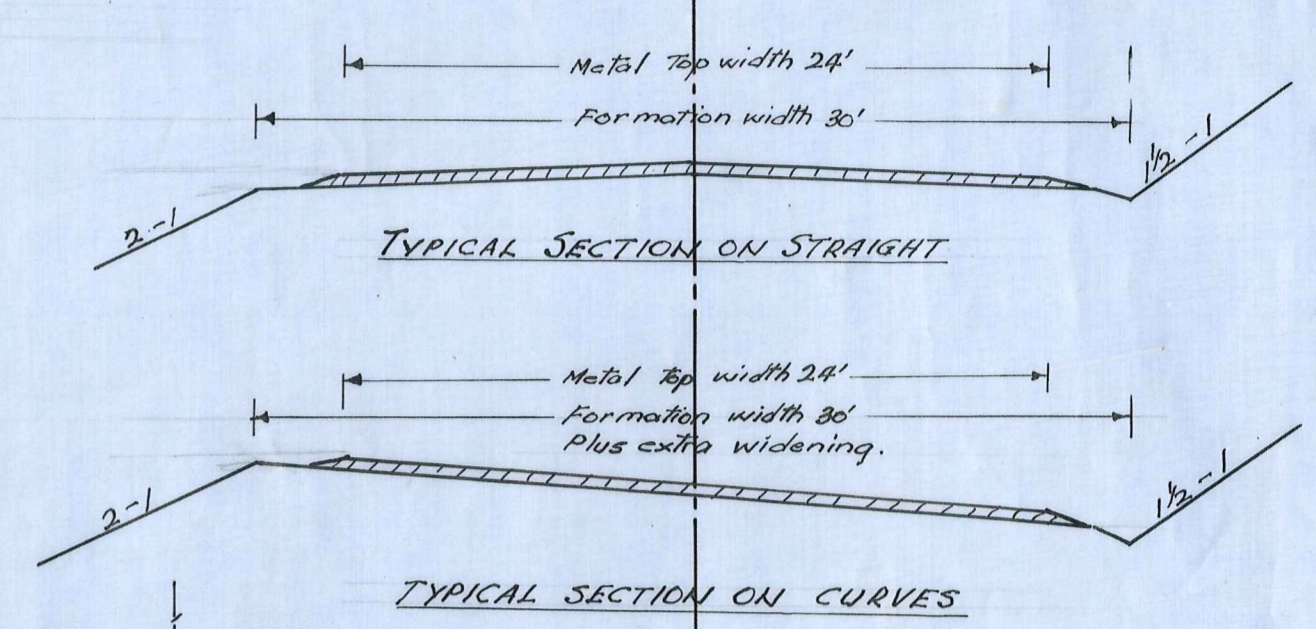 Metal Top width 24'
Formation width 30'
2-1
1½-1
TYPICAL SECTION ON STRAIGHT
Metal Top width 24'
Formation width 30'
Plus extra widening.
2-1
1½-1
TYPICAL SECTION ON CURVES